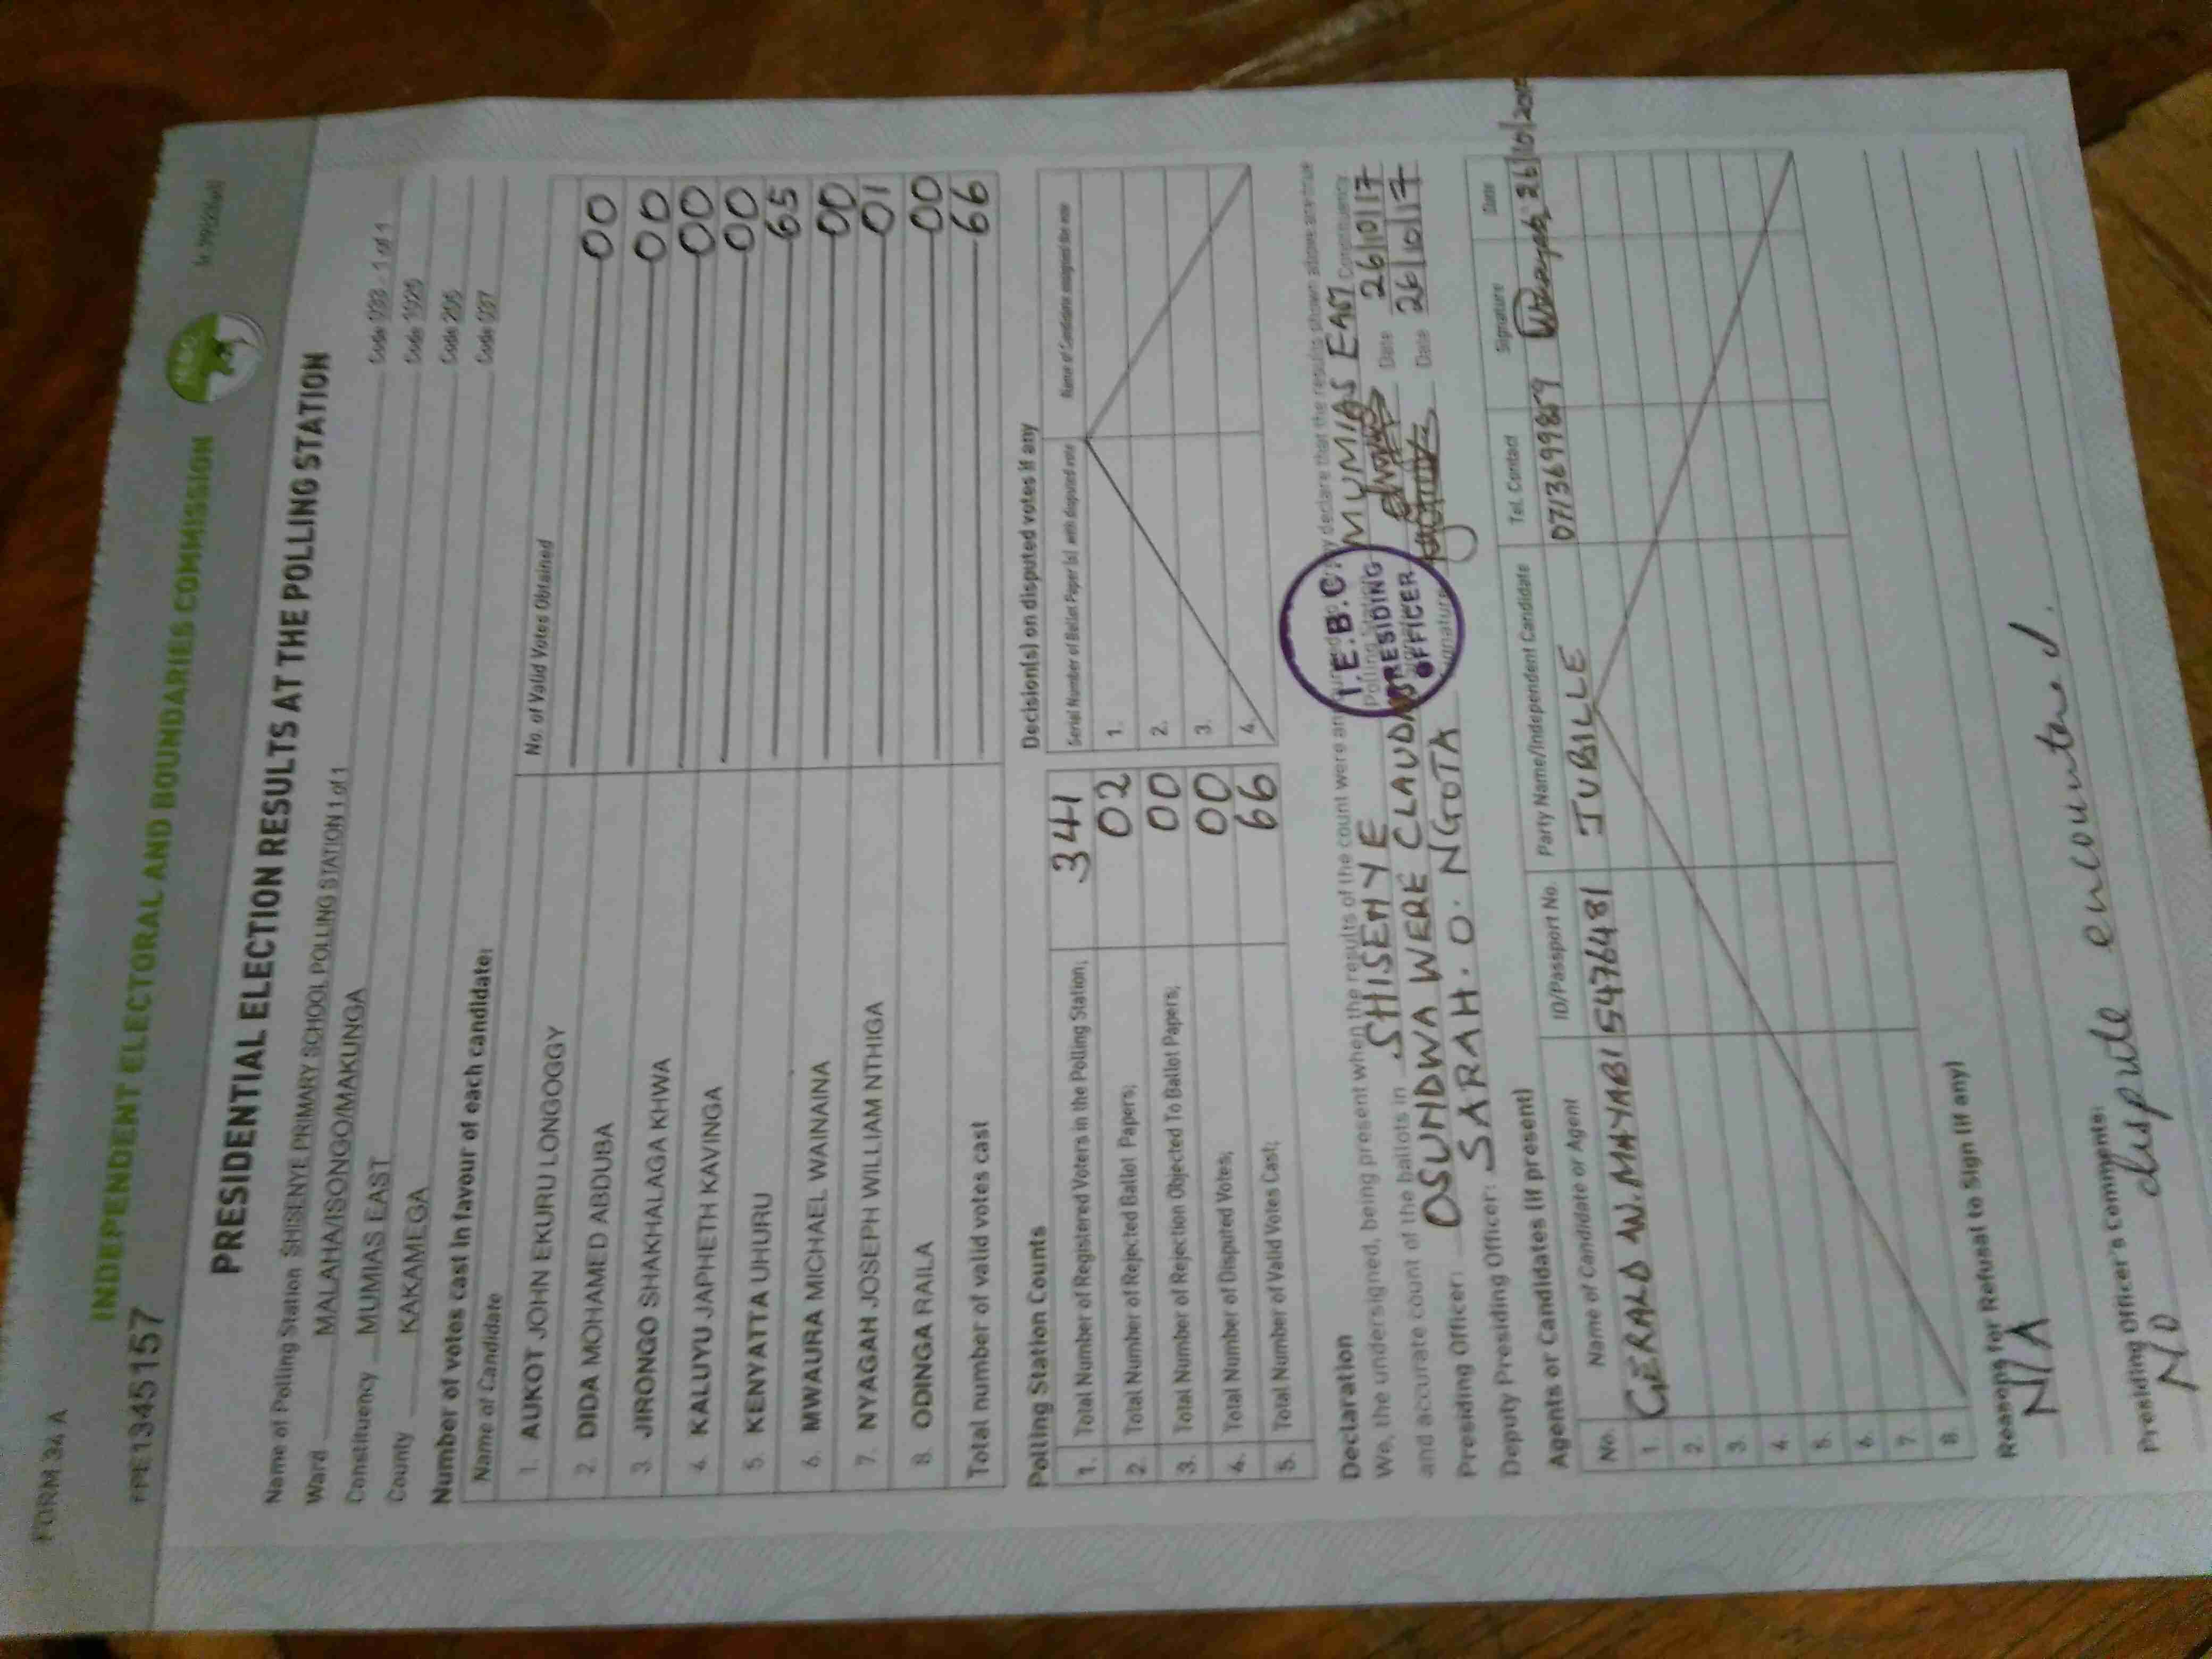 FORM 34 A
INDEPENDENT ELECTORAL AND BOUNDARIES COMMISSION
PPE1345157
PRESIDENTIAL ELECTION RESULTS AT THE POLLING STATION
Name of Polling Station SHISENYE PRIMARY SCHOOL POLLING STATION 1 of 1 Code 033 - 1 of 1
Ward MALAHA/ISONGO/MAKUNGA Code 1025
Constituency MUMIAS EAST Code 205
County KAKAMEGA Code 037
Number of votes cast in favour of each candidate:
Name of Candidate No. of Valid Votes Obtained
1. AUKOT JOHN EKURU LONGOGGY 00
2. DIDA MOHAMED ABDUBA 00
3. JIRONGO SHAKHALAGA KHWA 00
4. KALUYU JAPHETH KAVINGA 00
5. KENYATTA UHURU 65
6. MWAURA MICHAEL WAINAINA 00
7. NYAGAH JOSEPH WILLIAM NTHIGA 01
8. ODINGA RAILA 00
Total number of valid votes cast 66
Polling Station Counts
1. Total Number of Registered Voters in the Polling Station; 341
2. Total Number of Rejected Ballot Papers; 02
3. Total Number of Rejection Objected To Ballot Papers; 00
4. Total Number of Disputed Votes; 00
5. Total Number of Valid Votes Cast; 66
Decision(s) on disputed votes if any
Serial Number of Ballot Paper (s) with disputed vote Name of Candidate assigned the vote
1.
2.
3.
4.
Declaration
We, the undersigned, being present when the results of the count were declare that the results shown above are true
and accurate count of the ballots in SHISENYE Polling Station MUMIAS EAST Constituency
Presiding Officer: OSUNDWA WERE CLAUD Date 26/10/17
Deputy Presiding Officer: SARAH. O. NGOTA Signature Date 26/10/17
I.E.B.C.
PRESIDING
OFFICER
Agents or Candidates (if present)
No. Name of Candidate or Agent ID/Passport No. Party Name/Independent Candidate Tel. Contact Signature Date
1. GERALD W. MAYABI 5476481 JUBILLE 0713699859 26/10/2017
2.
3.
4.
5.
6.
7.
8.
Reasons for Refusal to Sign (if any)
N/A
Presiding Officer's Comments:
No dispute encountered.